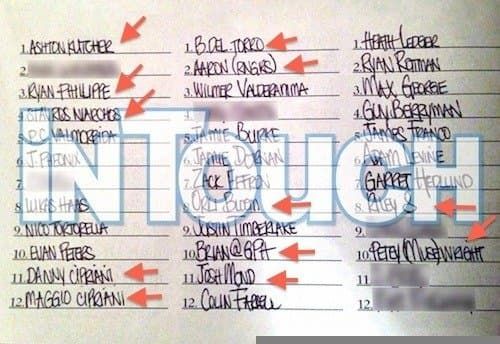 1. ASHTON KUTCHER
2.
3. RYAN PHILLIPPE
4. STAVROS NIARCHOS
5. P.C. VALMORBIDA
6. J. PHEONIX
7.
8. LUKAS HAAS
9. NICO TORTORELLA
10. EVAN PETERS
11. DANNY CIPRIANI
12. MAGGIO CIPRIANI
1. B. DEL TORRO
2. AARON (RNGRS)
3. WILMER VALDERAMA
4.
5. JAMIE BURKE
6. JAMIE DORNAN
7. ZACK EFFRON
8. ORLY BLOOM
9. JUSTIN TIMBERLAKE
10. BRIAN@GPA
11. JOSH MOND
12. COLIN FARRELL
1. HEATH LEDGER
2. RYAN ROTTMAN
3. MAX GEORGE
4. GUY BERRYMAN
5. JAMES FRANCO
6. ADAM LEVINE
7. GARRET HEDLUND
8. RILEY S
9.
10. PETEY (MUSE) WRIGHT
11.
12.
INTOUCH